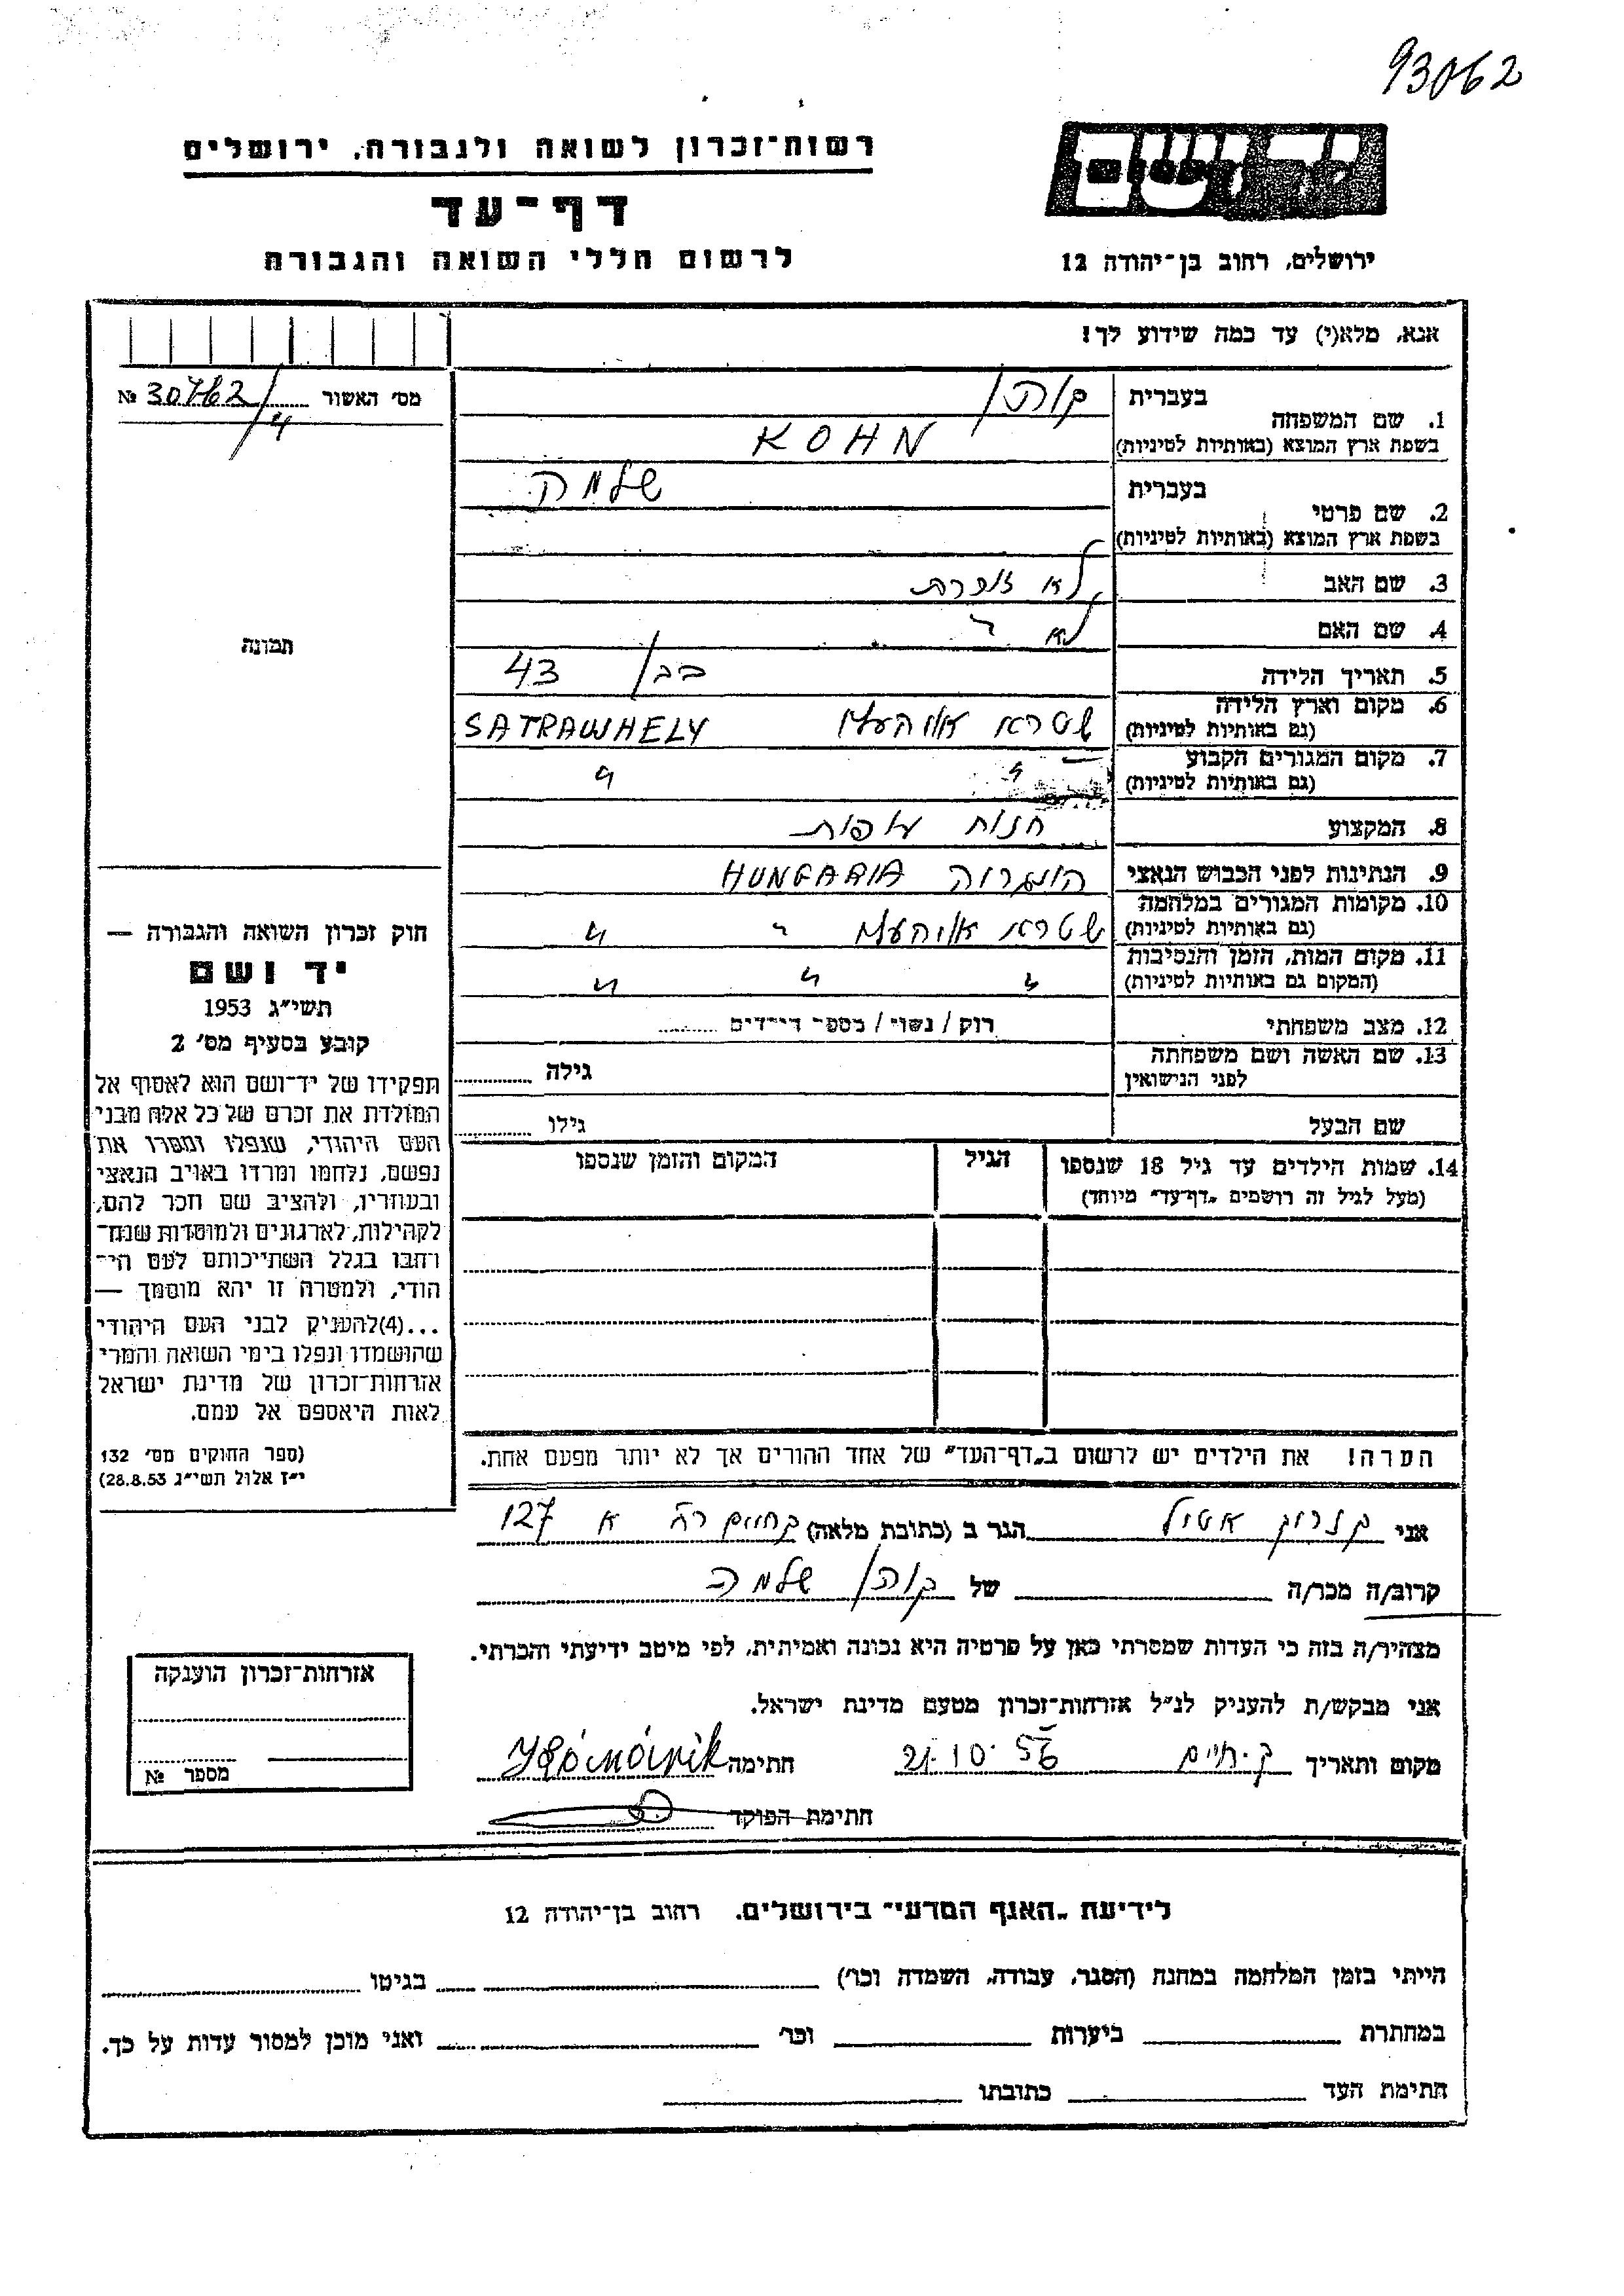 93062
יד ושם
ירושלים, רחוב בן־יהודה 12
רשות־זכרון לשואה ולגבורה, ירושלים
דף־עד
לרשום חללי השואה והגבורה
אנא, מלא(י) עד כמה שידוע לך!
מס׳ האשור № 30762/4
1. שם המשפחה בעברית קוהן
בשפת ארץ המוצא (באותיות לטיניות) KOHN
2. שם פרטי בעברית שלמה
בשפת ארץ המוצא (באותיות לטיניות)
3. שם האב לא זוכרת
4. שם האם לא "
5. תאריך הלידה בן 43
6. מקום וארץ הלידה
(גם באותיות לטיניות) SATRAWHELY
7. מקום המגורים הקבוע
(גם באותיות לטיניות) " "
8. המקצוע חנות עופות
9. הנתינות לפני הכבוש הנאצי HUNGARIA
10. מקומות המגורים במלחמה
(גם באותיות לטיניות) " "
11. מקום המות, הזמן והנסיבות
(המקום גם באותיות לטיניות) " " "
12. מצב משפחתי רוק / נשוי / מספר ילדים
13. שם האשה ושם משפחתה
לפני הנישואין גילה
שם הבעל גילו
14. שמות הילדים עד גיל 18 שנספו הגיל המקום והזמן שנספו
(מעל לגיל זה רושמים „דף־עד״ מיוחד)
הערה! את הילדים יש לרשום ב„דף־העד״ של אחד ההורים אך לא יותר מפעם אחת.
תמונה
חוק זכרון השואה והגבורה —
יד ושם
תשי״ג 1953
קובע בסעיף מס׳ 2
תפקידו של יד־ושם הוא לאסוף אל
המולדת את זכרם של כל אלה מבני
העם היהודי, שנפלו ומסרו את
נפשם, נלחמו ומרדו באויב הנאצי
ובעוזריו, ולהציב שם וזכר להם,
לקהילות, לארגונים ולמוסדות שנח־
רבו בגלל השתייכותם לעם הי־
הודי, ולמטרה זו יהא מוסמך —
...(4)להעניק לבני העם היהודי
שהושמדו ונפלו בימי השואה והמרי
אזרחות־זכרון של מדינת ישראל
לאות היאספם אל עמם.
(ספר החוקים מס׳ 132
י״ז אלול תשי״ג 28.8.53)
אני הגר ב (כתובת מלאה) א 127
קרוב/ה מכר/ה של קוהן שלמה
מצהיר/ה בזה כי העדות שמסרתי כאן על פרטיה היא נכונה ואמיתית, לפי מיטב ידיעתי והכרתי.
אני מבקש/ת להעניק לנ״ל אזרחות־זכרון מטעם מדינת ישראל.
מקום ותאריך ק. חיים 21.10.56 חתימה
חתימת הפוקד
אזרחות־זכרון הוענקה
מספר №
לידיעת „האגף המדעי״ בירושלים, רחוב בן־יהודה 12
הייתי בזמן המלחמה במחנה (הסגר, עבודה, השמדה וכו׳) בגיטו
במחתרת ביערות וכו׳ ואני מוכן למסור עדות על כך.
חתימת העד כתובתו